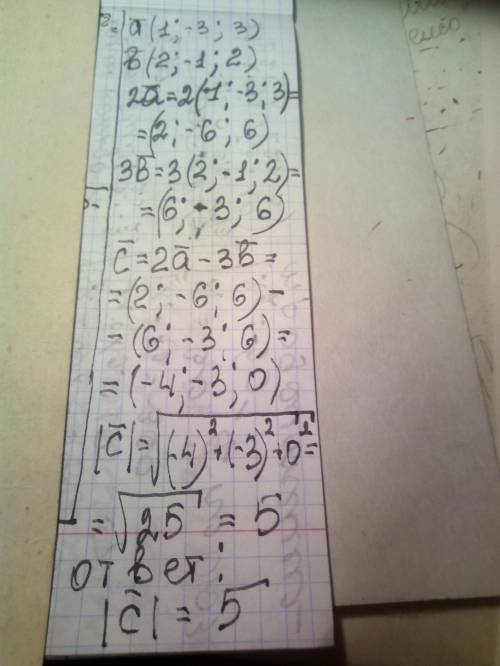 ā(1; -3; 3)
b̄(2; -1; 2)
2ā=2(1; -3; 3)=
=(2; -6; 6)
3b̄=3(2; -1; 2)=
=(6; -3; 6)
c̄=2ā-3b̄=
=(2; -6; 6)-
=(6; -3; 6)=
=(-4; -3; 0)
|c̄|=√(-4)²+(-3)²+0²=
=√25=5
ответ:
|c̄|=5